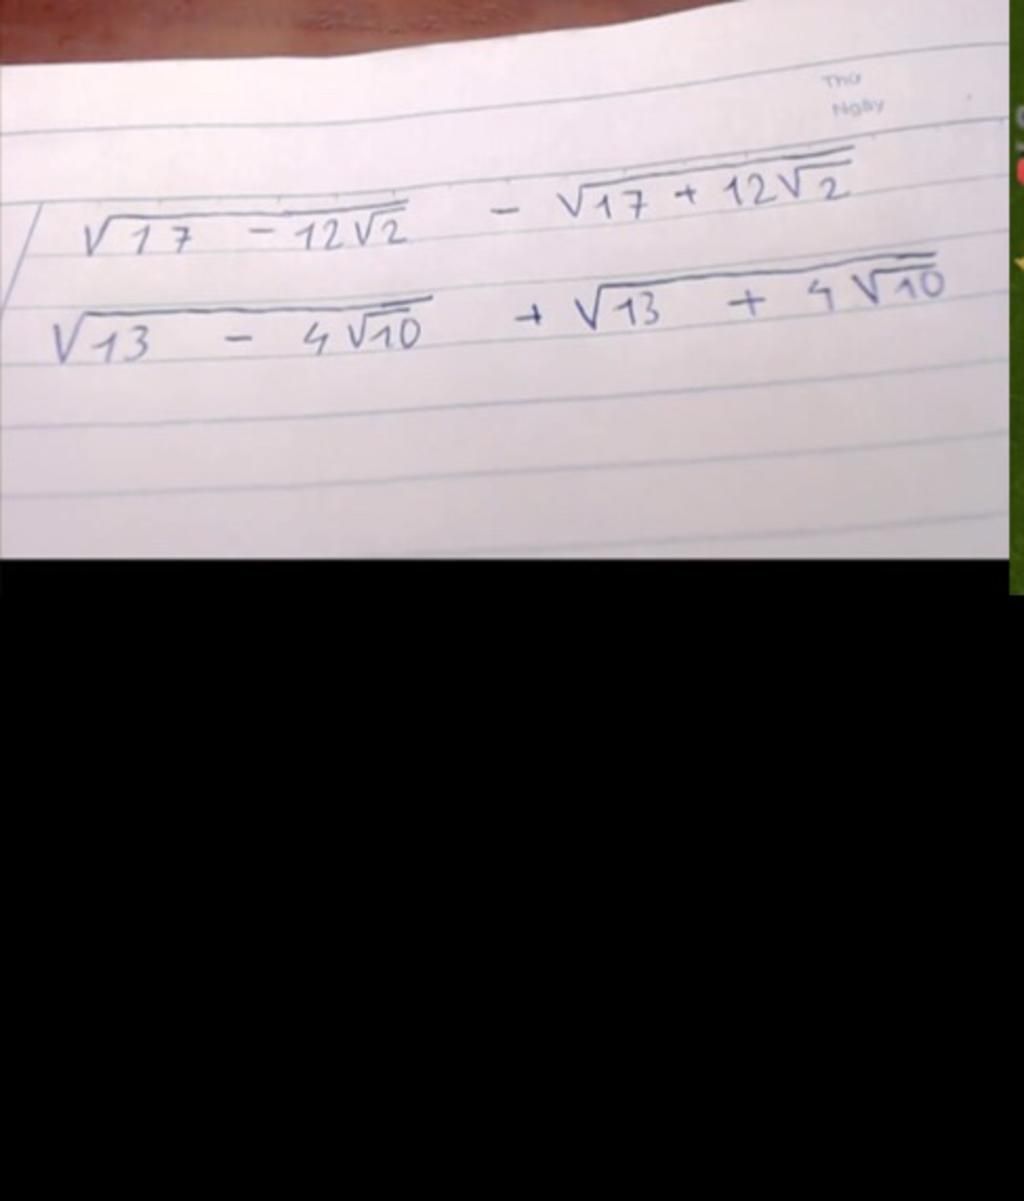 Thứ
Ngày
√17 - 12√2 - √17 + 12√2
√13 - 4√10 + √13 + 4√10